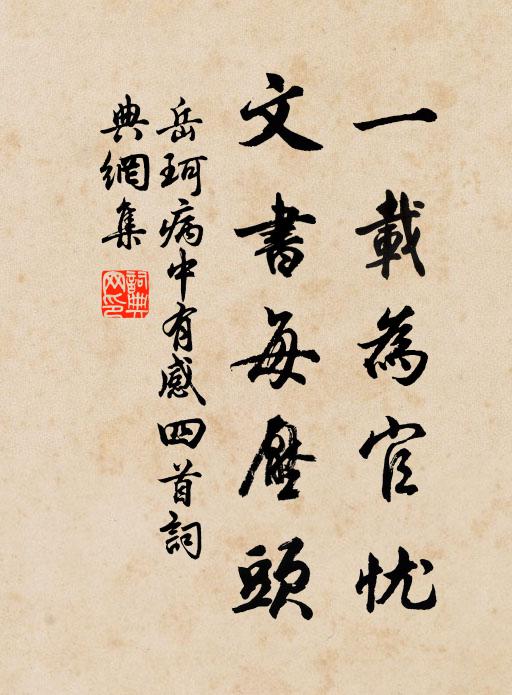 一載為官忧
文書每壓頭
岳珂病中有感四首詞
典網集
詞典网印